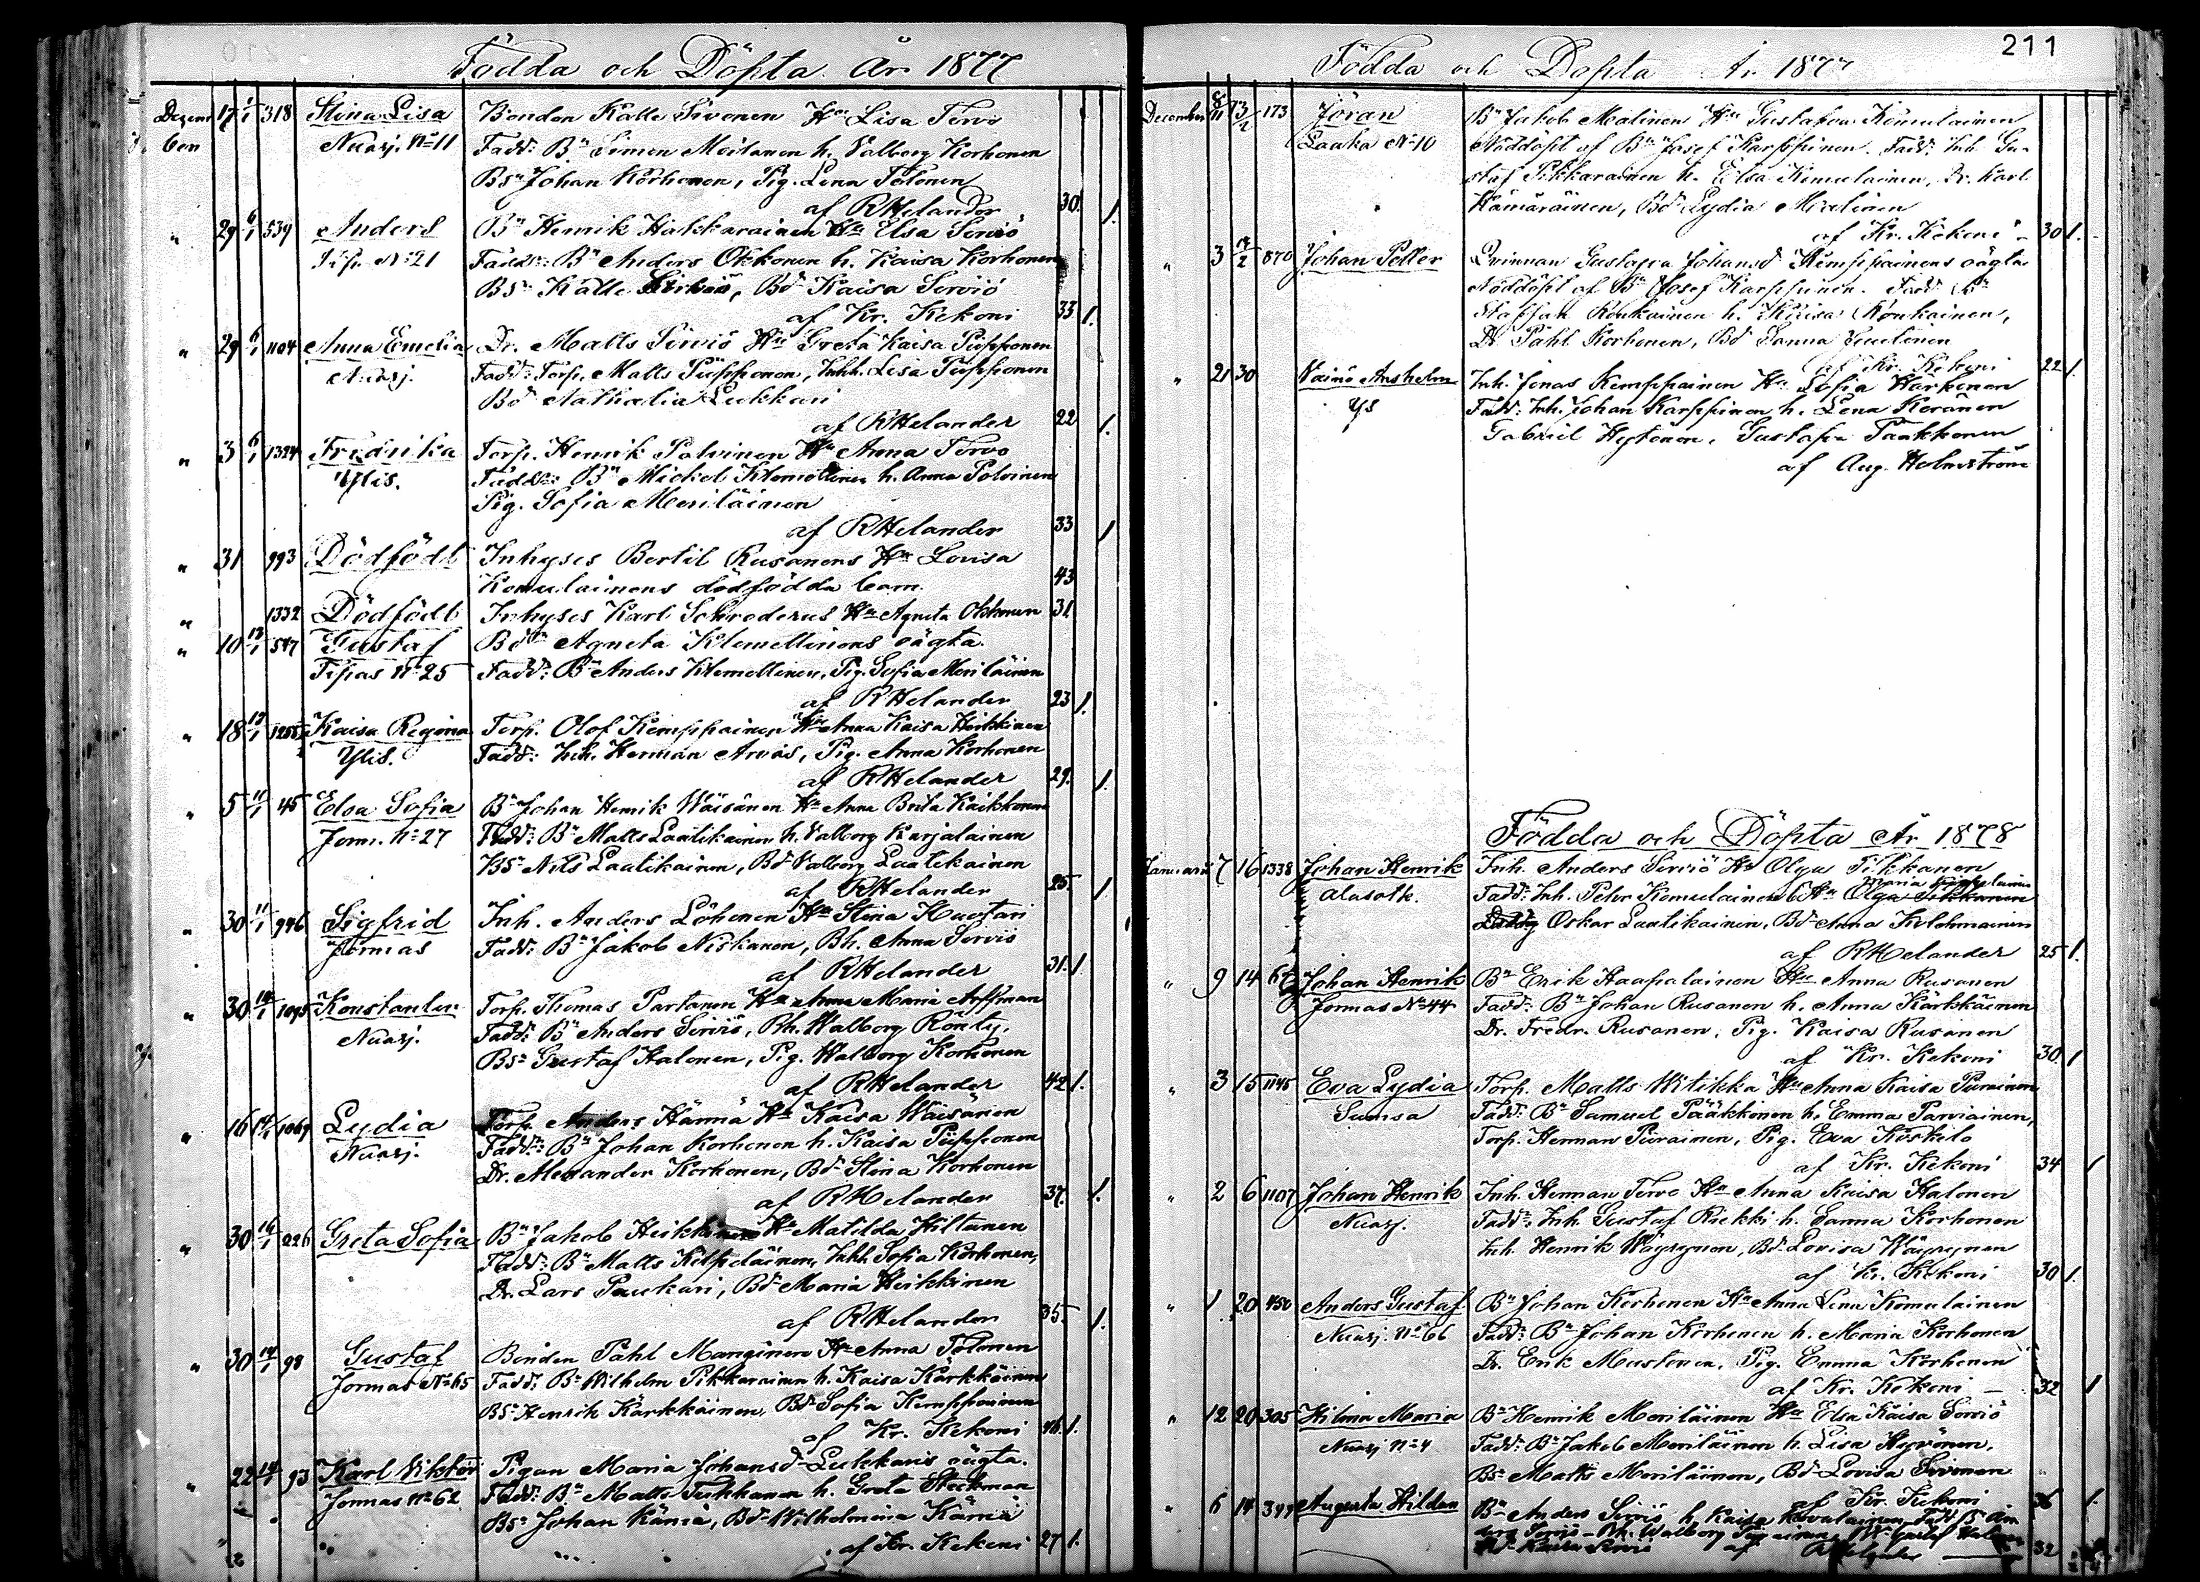 Födda och Döpta År 1877
Decem 17 1/1 318 Stina Lisa Bonden Kalle Sivonen Hu Lisa Tervo
ber Nuasj. No 11 Fadd: Bn Simon Moilanen h. Valborg Korhonen
Bsn Johan Korhonen, Pig. Lena Tolonen
af RHelander 30 1.
" 29 6/1 539 Anders Bn Henrik Hakkarainen Hu Elsa Serviö
Tip. No 21 Fadd: Bn Anders Okkonen h. Kaisa Korhonen
Bsn Kalle Bd Kaisa Serviö
af Kr. Kekoni 33 1.
" 29 6/1 1104 Anna Emelia Dr. Matts Sirviö Hu Greta Kaisa Piipponen
Nuasj. Fadd: Torp. Matts Piipponen, Inhh. Lisa Piipponen
Bd Nathalia Lukkari
af RHelander 22 1.
" 3 6/1 1324 Fredrika Torp. Henrik Polvinen Hu Anna Tervo
Ylis. Fadd: Bn Mickel Klemettinen h. Anna Polvinen
Pig. Sofia Meriläinen
af RHelander 33 1
" 31 993 Dödfödt Inhyses Bertil Rusanens Hu Lovisa
Komulainens dödfödda barn. 43
" 1332 Dödfödt Inhyses Karl Schroderus Hu Agneta Okkonen 31
" 10 13/1 547 Gustaf Bdtr Agneta Klemettinens oägta.
Tipas No 25 Fadd: Bn Anders Klemettinen, Pig. Sofia Meriläinen
af RHelander 23 1.
" 18 13/1 1255 Kaisa Regina Torp. Olof Kemppainen Hu Anna Kaisa Heikkinen
Ylis. Fadd: Inh. Herman Arvas, Pig. Anna Korhonen
af RHelander 29. 1.
" 5 11/1 45 Elsa Sofia Bn Johan Henrik Wäisänen Hu Anna Brita Kaikkonen
Jorm. No 27 Fadd: Bn Matts Laatikainen h. Valborg Karjalainen
Bsn Nils Laatikainen, Bd Valborg Laatikainen
af RHelander 25. 1
" 30 11/1 996 Sigfrid Inh. Anders Löhönen Hu Stina Huotari
Jormas Fadd: Bn Jakob Niskanen, Bh. Anna Serviö
af RHelander 31. 1
" 30 14/1 1095 Konstantin Torp. Thomas Partanen Hu Anna Maria Arffman
Nuasj. Fadd: Bn Anders Serviö, Bh. Walborg Rönty,
Bsn Gustaf Halonen, Pig. Walborg Korhonen
af RHelander 42 1.
" 16 14/1 1069 Lydia Torp. Anders Hännä Hu Kaisa Wäisänen
Nuasj. Fadd: Bn Johan Korhonen h. Kaisa Piipponen
Dr. Alexander Korhonen, Bd Stina Korhonen
af RHelander 37. 1.
" 30 14/1 226 Greta Sofia Bn Jakob Heikkinen Hu Matilda Hiltunen
Fadd: Bn Matts Kilpeläinen, Inhh. Sofia Korhonen,
Dr. Lars Paukari, Bd Maria Heikkinen
af RHelander 35. 1.
" 30 14/1 98 Gustaf Bonden Pahl Manginen Hu Anna Tolonen
Jormas No 65 Fadd: Bn Wilhelm Pikkarainen h. Kaisa Kärkkäinen
Bsn Henrik Kärkkäinen, Bd Sofia Kemppainen
af Kr. Kekoni 46. 1.
" 22 14/1 93 Karl Viktor Pigan Maria Johansd Lukkaris oägta.
Jormas No 62 Fadd: Bn Matts Tuikkanen h. Greta Steckman
Bsn Johan Käniä, Bd Wilhelmina Käniä
af Kr. Kekoni 27 1.
211
Födda och Döpta År 1877
December 8/11 3/2 173 Jöran Bn Jakob Malinen Hu Gustafva Komulainen
Laaka No 10 Nöddöpt af Bn Josef Karppinen. Fadd: Inh. Gu-
staf Pikkarainen h. Elsa Komulainen, Dr. Karl
Hämäräinen, Bd Lydia Malinen
af Kr. Kekoni 30 1.
" 3 870 Johan Petter Qvinnan Gustafva Johansd Kemppainens oägta
Nöddöpt af Bn Josef Karppinen. Fadd: Bn
Staffan Ronkainen h. Kaisa Ronkainen,
Dr Påhl Korhonen, Bd Sanna
af Kr. Kekoni 22 1.
" 21 30 Väinö Anshelm Inh. Jonas Kemppainen Hu Sofia Karppinen
Ys Fadd: Inh. Johan Karppinen h. Lena Keränen
Gabriel Hytönen, Gustafva Taakkonen
af Aug. Holmström
Födda och Döpta År 1878
Januari 7 16 1338 Johan Henrik Inh. Anders Serviö Hu Olga Pikkanen
Alasotk. Fadd: Inh. Peter Komulainen
Oskar Laatikainen, Bd Anna Kilpelainen
af RHelander 25 1.
" 9 14 67 Johan Henrik Bn Erik Haapalainen Hu Anna Rusanen
Jormas No 44 Fadd: Bn Johan Rusanen h. Anna Kärkkäinen
Dr. Fredr. Rusanen, Pig. Kaisa Rusanen
af Kr. Kekoni 30. 1
" 3 15 1145 Eva Lydia Torp. Matts Witikka Hu Anna Kaisa Piirainen
Sumsa Fadd: Bn Samuel Pääkkönen h. Emma Parviainen,
Torp. Herman Piirainen, Pig. Eva Koskelo
af Kr. Kekoni 34 1
" 2 6 1107 Johan Henrik Inh. Herman Tervo Hu Anna Kaisa Halonen
Nuasj. Fadd: Inh. Gustaf Riekki h. Sanna Korhonen
Inh. Henrik Wäyrynen, Bd Lovisa Wäyrynen
af Kr. Kekoni 30 1.
" 1 20 450 Anders Gustaf Bn Johan Korhonen Hu Anna Lena Komulainen
Nuasj. No 66 Fadd: Bn Johan Korhonen h. Maria Korhonen
Dr. Erik Mustonen, Pig. Emma Korhonen
af Kr. Kekoni 32 1
" 12 20 305 Hilma Maria Bn Henrik Meriläinen Hu Elsa Kaisa Serviö
Nuasj No 4 Fadd: Bn Jakob Meriläinen h. Lisa Hyvönen,
Bsn Matts Meriläinen, Bd Lovisa Sivonen
af Kr. Kekoni 36 1.
" 6 14 399 Augusta Hildan Bn Anders Serviö h. Kaisa
32